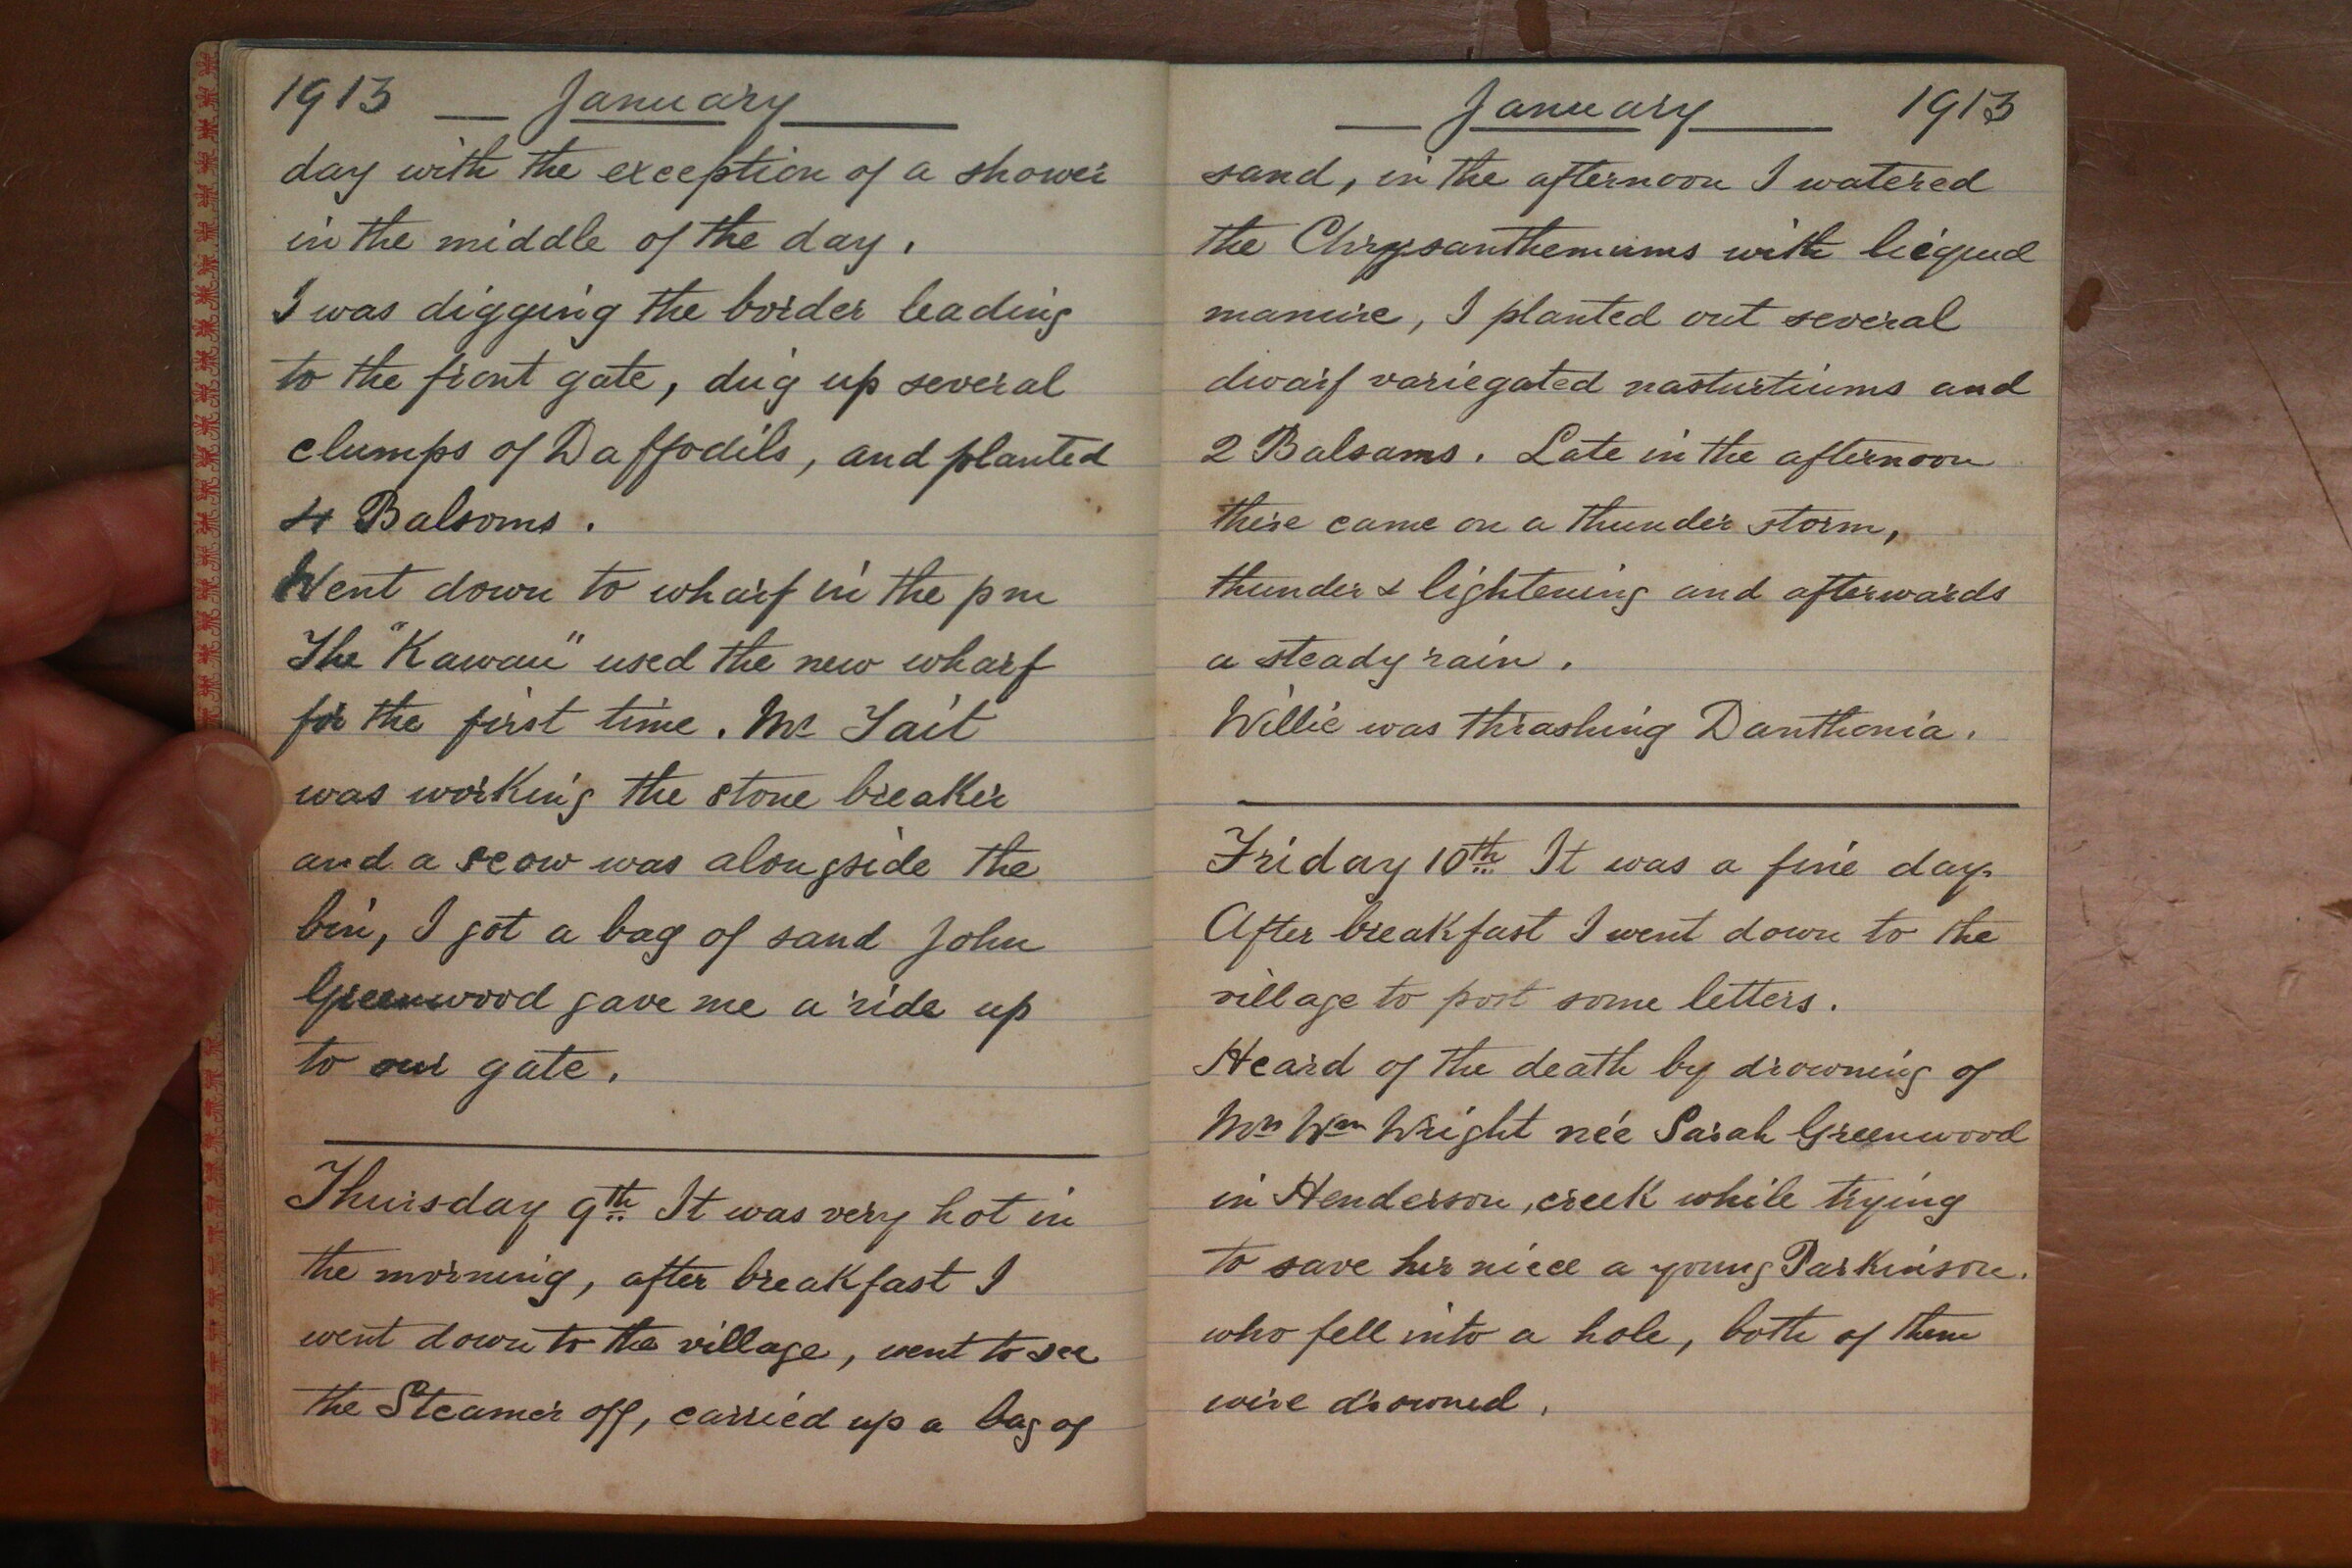 1913 January
day with the exception of a shower
in the middle of the day.
I was digging the border leading
to the front gate, dug up several
clumps of Daffodils, and planted
4 Balsoms.
Went down to wharf in the pm
The "Kawau" used the new wharf
for the first time. Mr Tait
was working the stone breaker
and a scow was alongside the
bin, I got a bag of sand John
Greenwood gave me a ride up
to our gate.
Thursday 9th It was very hot in
the morning, after breakfast I
went down to the village, went to see
the Steamer off, carried up a bag of
January 1913
sand, in the afternoon I watered
the Chrysanthemums with liequid
manure, I planted out several
dwarf variegated nasturtiums and
2 Balsams. Late in the afternoon
there came on a thunder storm,
thunder & lightening and afterwards
a steady rain.
Willie was thrashing Danthonia.
Friday 10th It was a fine day.
After breakfast I went down to the
village to post some letters.
Heard of the death by drowning of
Mrs Wm Wright née Sarah Greenwood
in Henderson, creek while trying
to save her niece a young Parkinson.
who fell into a hole, both of them
were drowned.